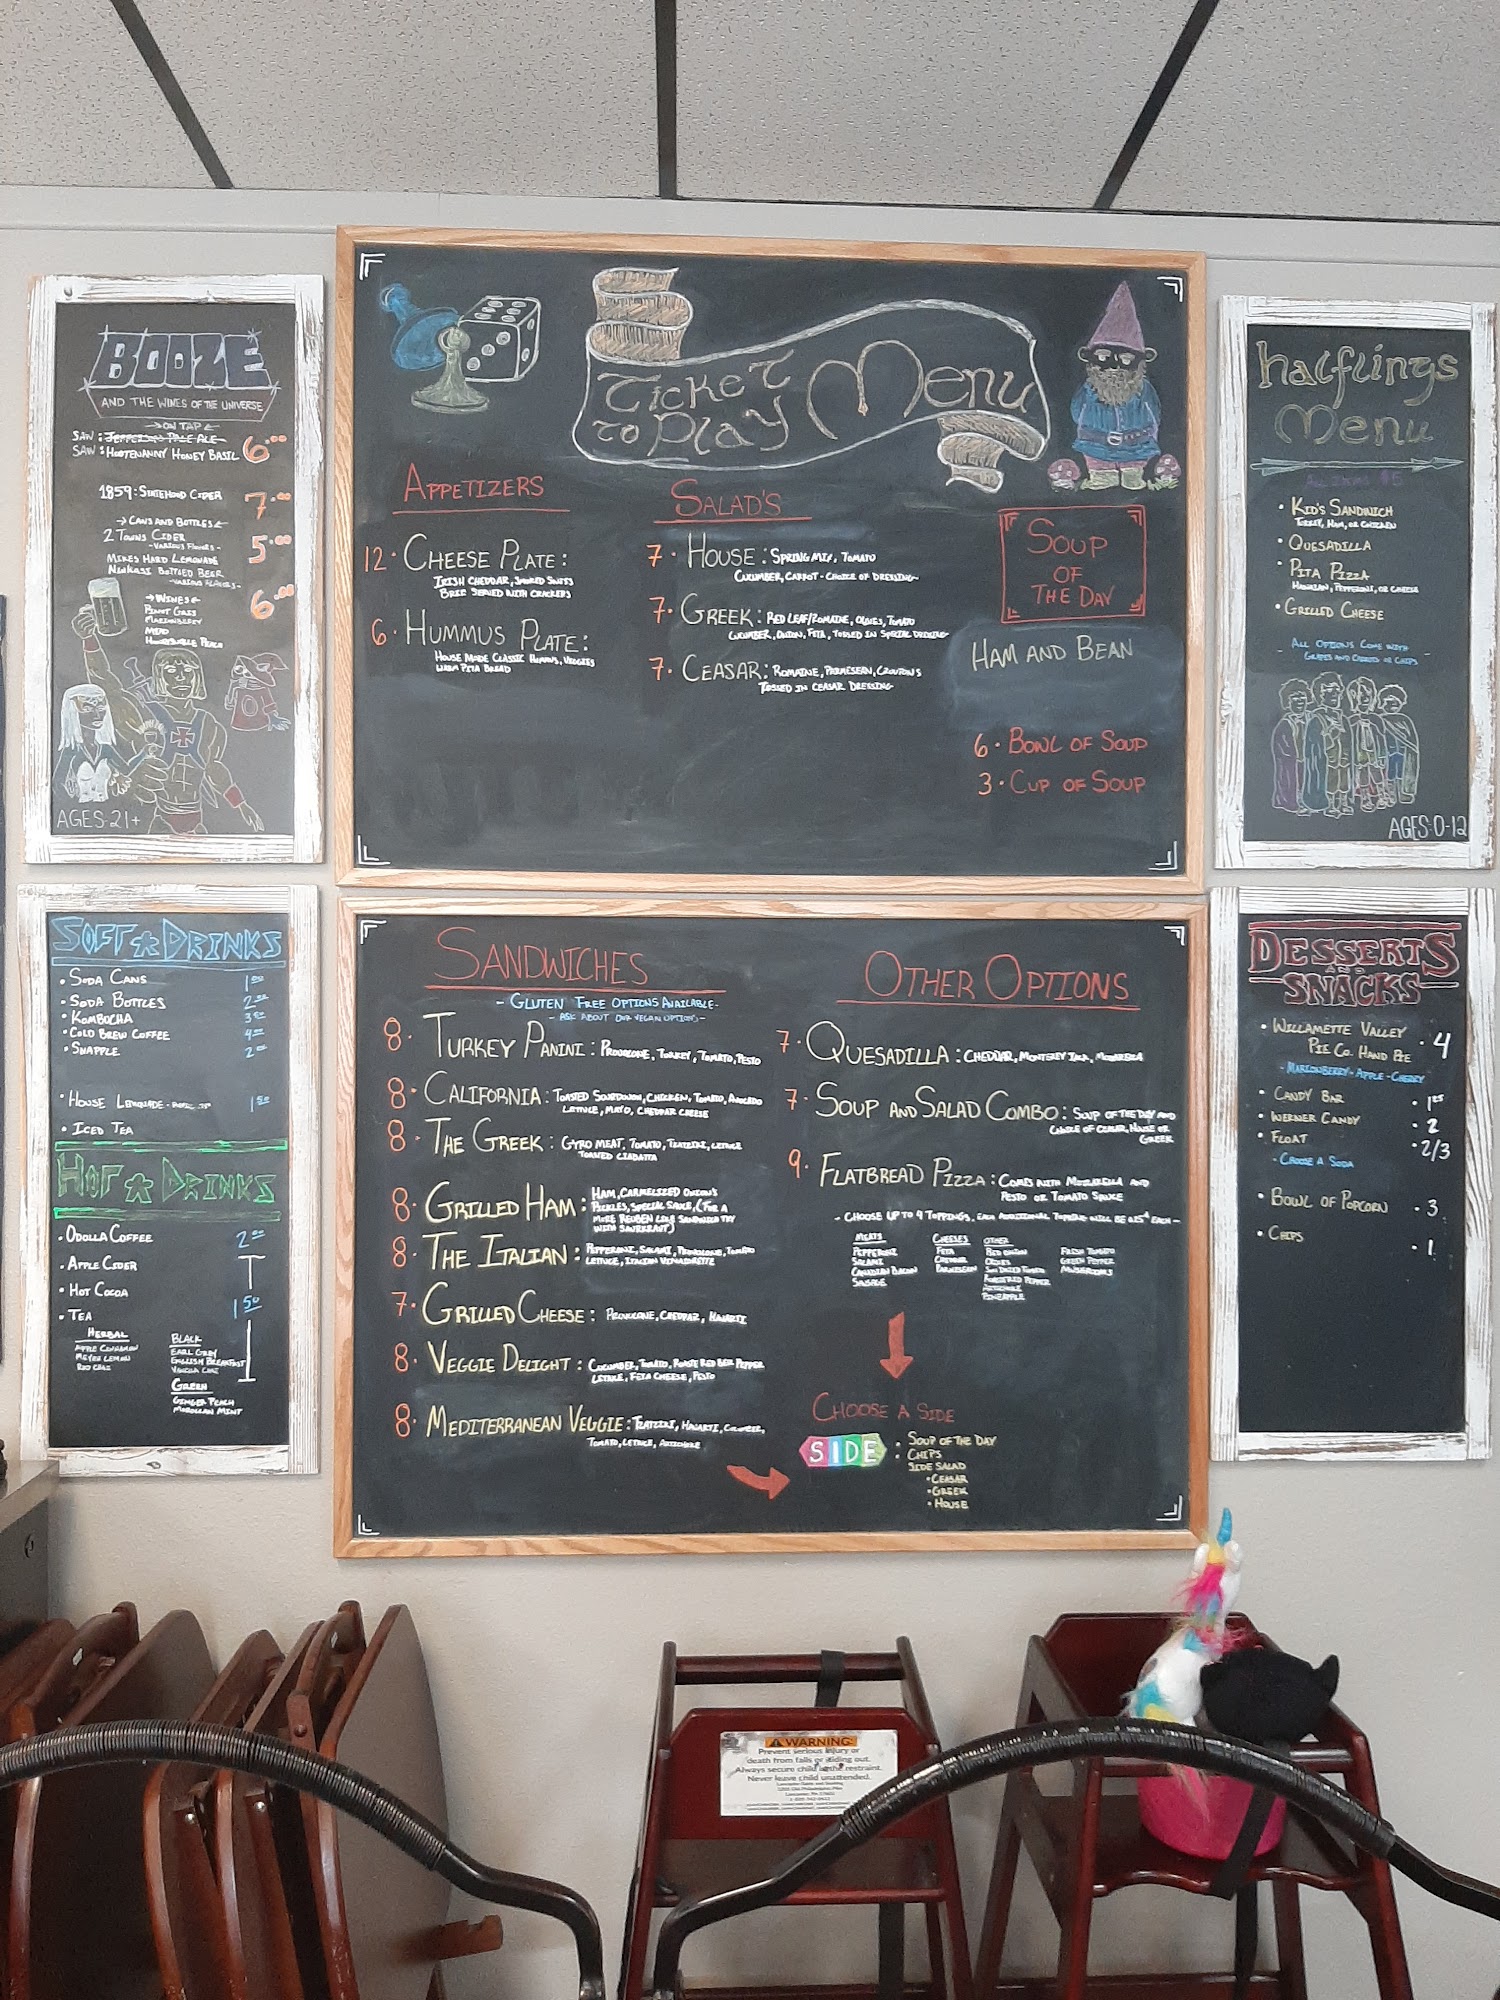 BOOZE
AND THE WINES OF THE UNIVERSE
ON TAP
SAW: JEFFERSON PALE ALE
SAW: HOOTENANNY HONEY BASIL 6.00
1859: STATEHOOD CIDER 7.00
CANS AND BOTTLES
2 TOWNS CIDER 5.00
-VARIOUS FLAVORS-
MIKES HARD LEMONADE
NINKASI BOTTLED BEER
-VARIOUS FLAVORS-
WINES 6.00
PINOT GRIS
MARIONBERRY
MEAD
HONEYSUCKLE PEACH
AGES: 21+
TICKET TO PLAY MENU
APPETIZERS
12. CHEESE PLATE:
IRISH CHEDDAR, SMOKED
BRIE SERVED WITH CRACKERS
6. HUMMUS PLATE:
HOUSE MADE CLASSIC HUMMUS, VEGGIES
WARM PITA BREAD
SALAD'S
7. HOUSE: SPRING MIX, TOMATO
CUCUMBER, CARROT - CHOICE OF DRESSING-
7. GREEK: RED LEAF/ROMAINE, OLIVES, TOMATO
CUCUMBER, ONION, FETA, TOSSED IN SPECIAL DRESSING-
7. CEASAR: ROMAINE, PARMESEAN, CROUTONS
TOSSED IN CEASAR DRESSING-
SOUP
OF
THE DAY
HAM AND BEAN
6. BOWL OF SOUP
3. CUP OF SOUP
halflings
Menu
ALL ITEMS $5
• KID'S SANDWICH
TURKEY, HAM, OR CHICKEN
• QUESADILLA
• PITA PIZZA
HAWAIIAN, PEPPERONI, OR CHEESE
• GRILLED CHEESE
- ALL OPTIONS COME WITH -
GRAPES AND CARROTS OR CHIPS
AGES: 0-12
SOFT DRINKS
• SODA CANS 1.50
• SODA BOTTLES 2.00
• KOMBOCHA
• COLD BREW COFFEE
• SNAPPLE 2.00
• HOUSE LEMONADE 1.50
• ICED TEA
HOT DRINKS
• ODOLLA COFFEE 2.00
• APPLE CIDER
• HOT COCOA
• TEA 1.50
HERBAL
APPLE CINNAMON
MEYER LEMON
RED CHAI
BLACK
EARL GREY
ENGLISH BREAKFAST
VANILLA CHAI
GREEN
GINGER PEACH
MOROCCAN MINT
SANDWICHES
- GLUTEN FREE OPTIONS AVAILABLE -
- ASK ABOUT OUR VEGAN OPTIONS -
8. TURKEY PANINI: PROVOLONE, TURKEY, TOMATO, PESTO
8. CALIFORNIA: TOASTED SOURDOUGH, CHICKEN, TOMATO, AVOCADO
LETTUCE, MAYO, CHEDDAR CHEESE
8. THE GREEK: GYRO MEAT, TOMATO, TZATZIKI, LETTUCE
TOASTED CIABATTA
8. GRILLED HAM: HAM, CARMELIZED ONION'S
PICKLES, SPECIAL SAUCE, (FOR A
MORE REUBEN LIKE SANDWICH TRY
WITH SAUERKRAUT)
8. THE ITALIAN: PEPPERONI, SALAMI, PROVOLONE, TOMATO
LETTUCE, ITALIAN VINAIGRETTE
7. GRILLED CHEESE: PROVOLONE, CHEDDAR, HAVARTI
8. VEGGIE DELIGHT: CUCUMBER, TOMATO, ROASTED RED BELL PEPPER
LETTUCE, FETA CHEESE, PESTO
8. MEDITERRANEAN VEGGIE: TZATZIKI, HAVARTI, CUCUMBER,
TOMATO, LETTUCE, ARTICHOKE
OTHER OPTIONS
7. QUESADILLA: CHEDDAR, MONTEREY JACK, MOZARELLA
7. SOUP AND SALAD COMBO: SOUP OF THE DAY AND
CHOICE OF CEASAR, HOUSE OR
GREEK
9. FLATBREAD PIZZA: COMES WITH MOZARELLA AND
PESTO OR TOMATO SAUCE
- CHOOSE UP TO 4 TOPPINGS, EACH ADDITIONAL TOPPING WILL BE 0.25¢ EACH -
MEATS
PEPPERONI
SALAMI
CANADIAN BACON
SAUSAGE
CHEESES
FETA
CHEDDAR
PARMESEAN
OTHER
RED ONION
OLIVES
SUN DRIED TOMATO
ROASTED RED PEPPER
ARTICHOKE
PINEAPPLE
FRESH TOMATO
GREEN PEPPER
MUSHROOMS
CHOOSE A SIDE
SIDE : SOUP OF THE DAY
: CHIPS
SIDE SALAD
• CEASAR
• GREEK
• HOUSE
DESSERTS
AND
SNACKS
• WILLAMETTE VALLEY
PIE CO. HAND PIE • 4
- MARIONBERRY - APPLE - CHERRY
• CANDY BAR • 1.25
• WERNER CANDY • 2
• FLOAT • 2/3
- CHOOSE A SODA
• BOWL OF POPCORN • 3
• CHIPS • 1
WARNING:
Prevent serious injury or
death from falls or sliding out.
Always secure child in the restraint.
Never leave child unattended.